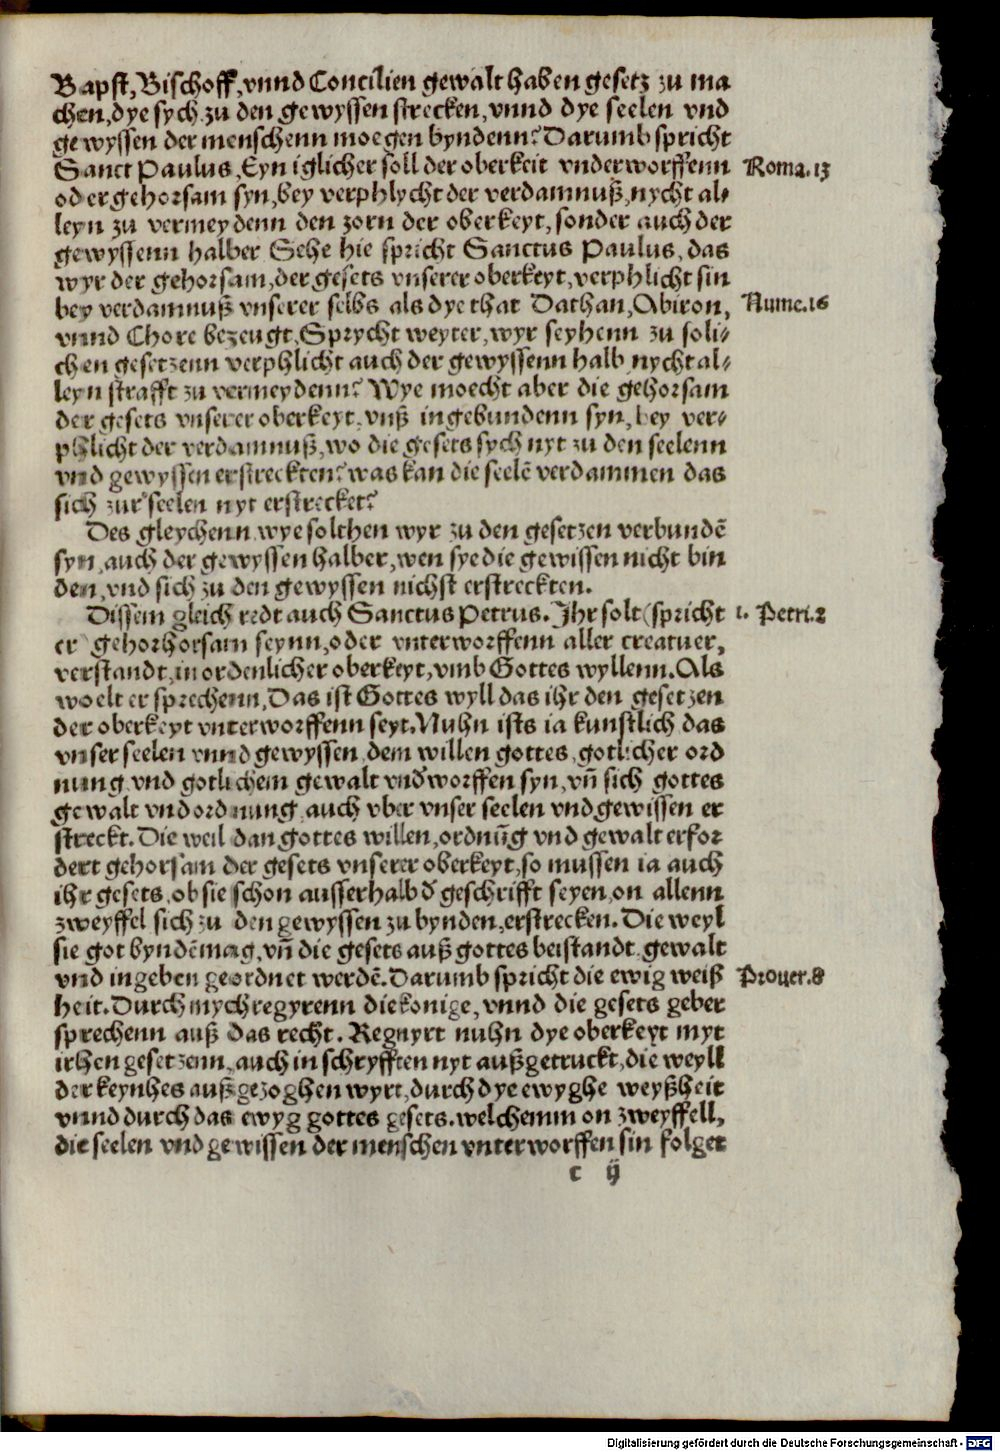 Bapst, Bischoff, vnnd Concilien gewalt haben gesetz zu ma
chen, dye sych zu den gewyssen strecken, vnnd dye seelen vnd
gewyssen der menschenn moegen byndenn? Darumb spricht
Sanct Paulus, Eyn iglicher soll der oberkeit vnderworffenn
Roma. 13
oder gehorsam syn, bey verphlycht der verdamnuß, nycht al⸗
leyn zu vermeydenn den zorn der oberkeyt, sonder auch der
gewyssenn halber Sehe hie spricht Sanctus Paulus, das
wyr der gehorsam, der gesets vnserer oberkeyt, verphlicht sin
bey verdamnuß vnserer selbs als dye that Dathan, Abiron,
Nume. 16
vnnd Chore bezeugt, Sprycht weyter, wyr seyhenn zu soli⸗
chen gesetzenn verphlicht auch der gewyssenn halb nycht al⸗
leyn strafft zu vermeydenn? Wye moecht aber die gehorsam
der gesets vnserer oberkeyt, vnß ingebundenn syn, bey ver⸗
phlicht der verdamnuß, wo die gesets sych nyt zu den seelenn
vnd gewyssen erstreckten? was kan die seelē verdammen das
sich zur seelen nyt erstrecket?
Des gleychenn wye solthen wyr zu den gesetzen verbundē
syn, auch der gewyssen halber, wen sye die gewissen nicht bin
den, vnd sich zu den gewyssen nichst erstreckten.
Dissem gleich redt auch Sanctus Petrus. Ihr solt (spricht
1. Petri. 2
er) gehorhorsam seynn, oder vnterworffenn aller creatuer,
verstandt, in ordenlicher oberkeyt, vmb Gottes wyllenn. Als
woelt er sprechenn, Das ist Gottes wyll das ihr den gesetzen
der oberkeyt vnterworffenn seyt. Nuhn ists ia kunstlich das
vnser seelen vnnd gewyssen dem willen gottes, gotlicher ord
nung vnd gotlichem gewalt vnd̕worffen syn, vn̄ sich gottes
gewalt vnd ordnung auch vber vnser seelen vnd gewissen er
streckt. Die weil dan gottes willen, ordnūg vnd gewalt erfor
dert gehorsam der gesets vnserer oberkeyt, so mussen ia auch
ihr gesets, ob sie schon ausserhalb d̕ geschrifft seyen, on allenn
zweyffel sich zu den gewyssen zu bynden, erstrecken. Die weyl
sie got byndēmag, vn̄ die gesets auß gottes beistandt, gewalt
vnd ingeben geordnet werdē. Darumb spricht die ewig weiß
Prouer. 8
heit. Durch mych regyrenn die konige, vnnd die gesets geber
sprechenn auß das recht. Regnyrt nuhn dye oberkeyt myt
irhen gesetzenn, auch in schryfften nyt außgetruckt, die weyll
der keynhes außgezoghen wyrt, durch dye ewyghe weyßheit
vnnd durch das ewyg gottes gesets. welchemm on zweyffell,
die seelen vnd gewissen der menschen vnterworffen sin folget
c ij
Digitalisierung gefördert durch die Deutsche Forschungsgemeinschaft - DFG